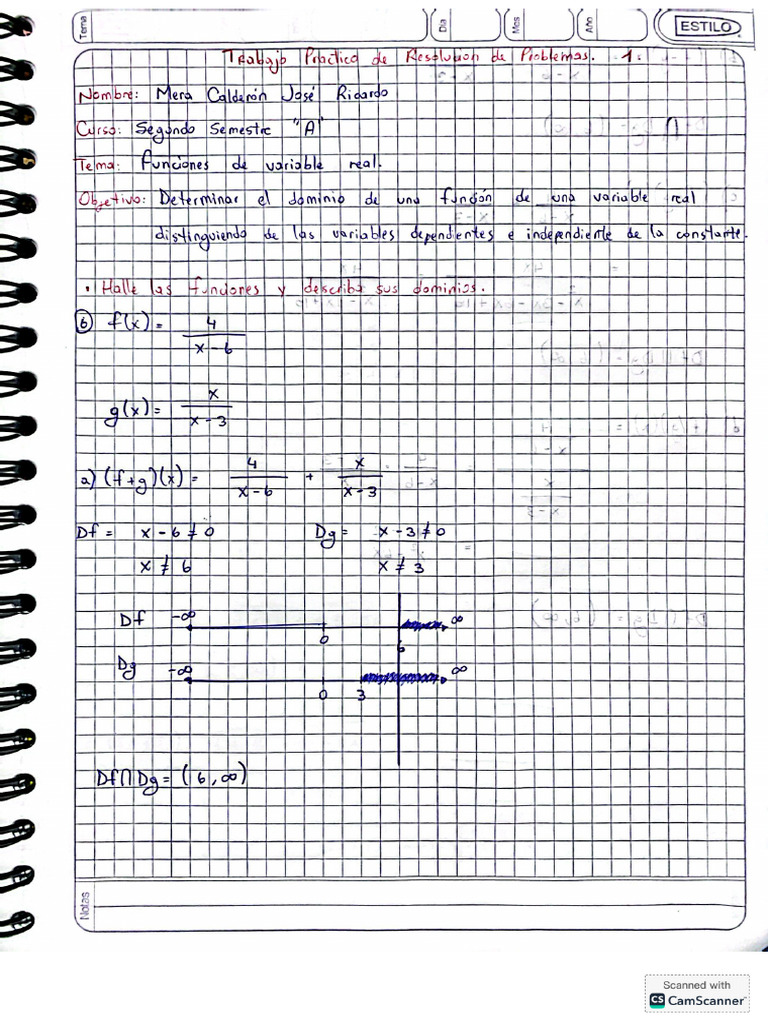 Tema
Dia
Mes
Año
ESTILO
Trabajo Práctico de Resolución de Problemas. 1.
Nombre: Mera Calderón José Ricardo
Curso: Segundo Semestre "A"
Tema: Funciones de variable real.
Objetivo: Determinar el dominio de una función de una variable real
distinguiendo de las variables dependientes e independiente de la constante.
• Halle las funciones y describa sus dominios.
6) f(x) = 4 / (x - 6)
g(x) = x / (x - 3)
a) (f+g)(x) = 4 / (x - 6) + x / (x - 3)
Df = x - 6 ≠ 0    Dg = x - 3 ≠ 0
x ≠ 6    x ≠ 3
Df -∞ 0 6 ∞
Dg -∞ 0 3 ∞
Df∩Dg = (6, ∞)
Notas
Scanned with
CS CamScanner